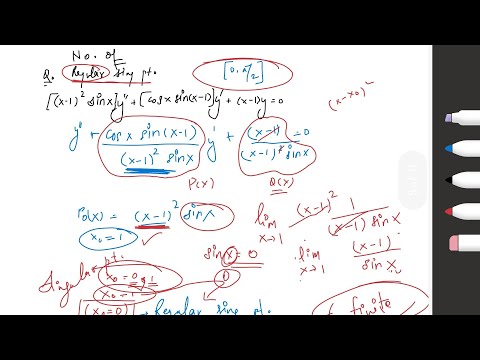 No. of
Q. Regular sing pt. [0, π/2]
[(x-1)² sinx]y'' + [cosx sin(x-1)]y' + (x-1)y = 0
(x-x₀)²
y'' + cosx sin(x-1) / (x-1)² sinx y' + (x-1) / (x-1)² sinx = 0
P(x) Q(x)
P₀(x) = (x-1)² sinx
lim x→1 (x-1)² 1 / (x-1) sinx
x₀ = 1 ✓
sinx = 0
lim x→1 (x-1) / sinx
Singular pt.
x₀ = 0
x₀ = 1
0
x₀ = 0 → Regular sing pt.
finite